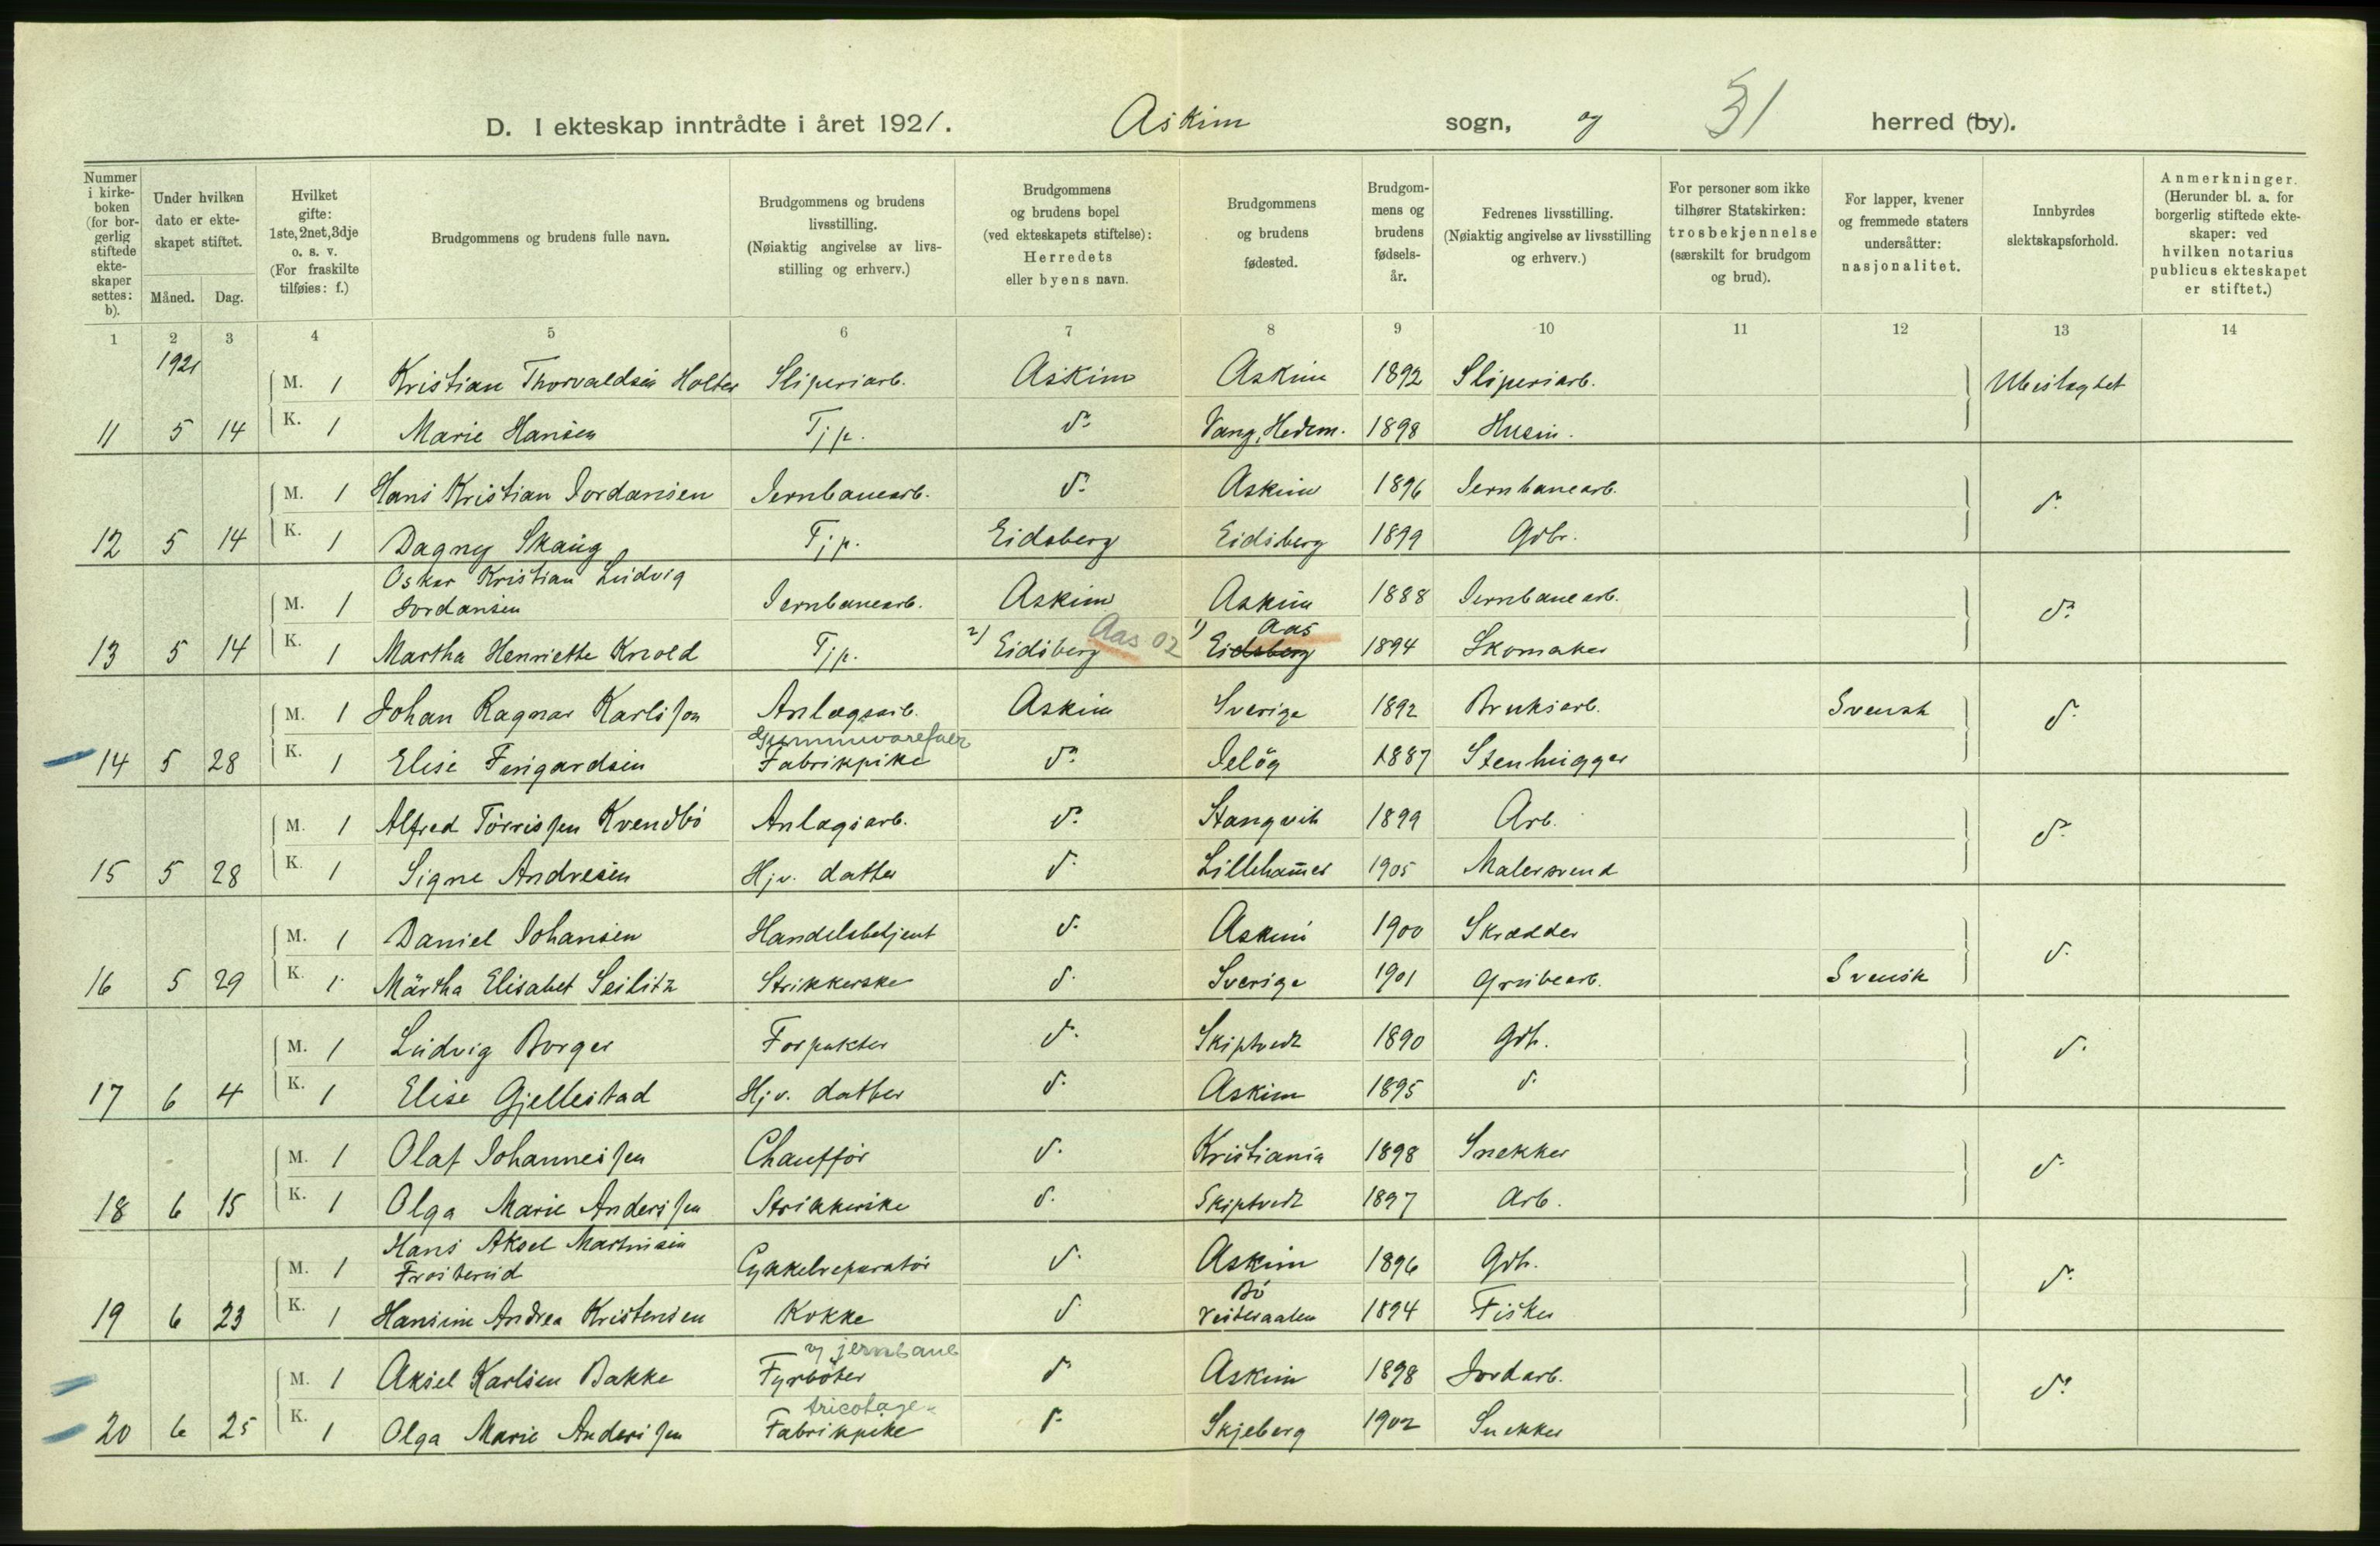 D. I ekteskap inntrådte i året 1921. Askim sogn, og 31 herred (by).
Nummer i kirke-boken (for bor-gerlig stiftede ekte-skaper settes: b).
Under hvilken dato er ekte-skapet stiftet.
Måned. Dag.
Hvilket gifte: 1ste, 2net, 3dje o. s. v. (For fraskilte tilføies: f.)
Brudgommens og brudens fulle navn.
Brudgommens og brudens livsstilling. (Nøiaktig angivelse av livs-stilling og erhverv.)
Brudgommens og brudens bopel (ved ekteskapets stiftelse): Herredets eller byens navn.
Brudgommens og brudens fødested.
Brudgom-mens og brudens fødsels-år.
Fedrenes livsstilling. (Nøiaktig angivelse av livsstilling og erhverv.)
For personer som ikke tilhører Statskirken: trosbekjennelse (særskilt for brudgom og brud).
For lapper, kvener og fremmede staters undersåtter: nasjonalitet.
Innbyrdes slektskapsforhold.
Anmerkninger. (Herunder bl. a. for borgerlig stiftede ekte-skaper: ved hvilken notarius publicus ekteskapet er stiftet.)
1 2 3 4 5 6 7 8 9 10 11 12 13 14
1921
M. 1 Kristian Thorvaldsen Holter Sliperiarb. Askim Askim 1892 Sliperiarb. Ubeslegtet
11 5 14 K. 1 Marie Hansen Tjp. do Vang, Hedm. 1898 Husm.
M. 1 Hans Kristian Jordansen Jernbanearb. do Askim 1896 Jernbanearb. do
12 5 14 K. 1 Dagny Skaug Tjp. Eidsberg Eidsberg 1899 Gdbr.
Oskar Kristian Ludvig
M. 1 Jordansen Jernbanearb. Askim Askim 1888 Jernbanearb. do
Aas 02 Aas
13 5 14 K. 1 Martha Henriette Knold Tjp. 2) Eidsberg 1) Eidsberg 1894 Skomaker
M. 1 Johan Ragnar Karlsson Anlægsarb. Askim Sverige 1892 Bruksarb. Svensk do
Gummivarefabr
14 5 28 K. 1 Elise Fingardsen Fabrikpike do Jeløy 1887 Stenhugger
M. 1 Alfred Tørrissen Kvendbø Anlægsarb. do Stangvik 1899 Arb. do
15 5 28 K. 1 Signe Andresen Hjv. datter do Lillehamer 1905 Malersvend
M. 1 Daniel Johansen Handelsbetjent do Askim 1900 Skrædder do
16 5 29 K. 1 Märtha Elisabet Seilitz Strikkerske do Sverige 1901 Grubearb. Svensk
M. 1 Ludvig Borger Forpakter do Skiptvedt 1890 Gdb. do
17 6 4 K. 1 Elise Gjellestad Hjv. datter do Askim 1895 do
M. 1 Olaf Johannessen Chauffør do Kristiania 1898 Snekker do
18 6 15 K. 1 Olga Marie Anderssen Strikkerske do Skiptvedt 1897 Arb.
Hans Aksel Martinsen
M. 1 Frostereid Cykkelreparatør do Askim 1896 Gdb. do
Bø
19 6 23 K. 1 Hansine Andrea Kristensen Kokke do Vesteraalen 1894 Fisker
v/ jernbane
M. 1 Aksel Karlsen Bakke Fyrbøter do Askim 1898 Jordarb. do
tricotage
20 6 25 K. 1 Olga Marie Anderssen Fabrikpike do Skjeberg 1902 Snekker